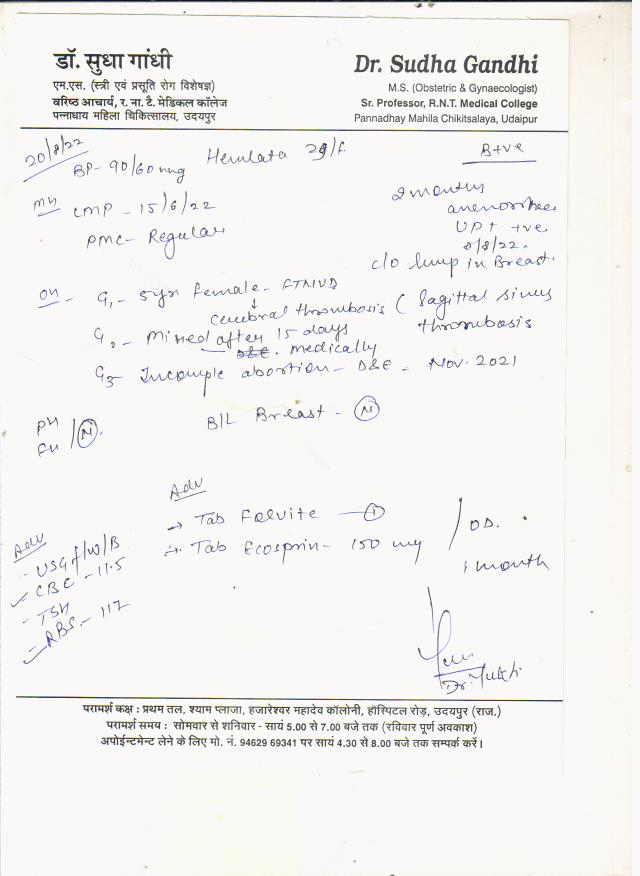 डॉ. सुधा गांधी
एम.एस. (स्त्री एवं प्रसूति रोग विशेषज्ञ)
वरिष्ठ आचार्य, र. ना. टै. मेडिकल कॉलेज
पन्नाधाय महिला चिकित्सालय, उदयपुर
Dr. Sudha Gandhi
M.S. (Obstetric & Gynaecologist)
Sr. Professor, R.N.T. Medical College
Pannadhay Mahila Chikitsalaya, Udaipur
20/8/22
BP- 90/60 mmg Hemlata 29/f.
B+ve
MH LMP - 15/6/22
PMC- Regular
2 months
amenorrhea
UPT +ve
8/8/22.
c/o lump in Breast.
OH - G1 - female - FTNVD
cerebral thrombosis (Sagittal sinus
thrombosis
G2 - Missed after 15 days
D&E. Medically
G3 - Incomple abortion - D&E - Nov. 2021
PH
FH / N.
B/L Breast - N
Adv
→ Tab Folvite - 1
→ Tab Ecosprin - 150 mg
/ OD.
1 month
Adv
- USG f/w/B
CBC - 11.5
- TSH
- RBS - 117
परामर्श कक्ष : प्रथम तल, श्याम प्लाजा, हजारेश्वर महादेव कॉलोनी, हॉस्पिटल रोड़, उदयपुर (राज.)
परामर्श समय : सोमवार से शनिवार - सायं 5.00 से 7.00 बजे तक (रविवार पूर्ण अवकाश)
अपोईन्टमेन्ट लेने के लिए मो. नं. 94629 69341 पर सायं 4.30 से 8.00 बजे तक सम्पर्क करें।